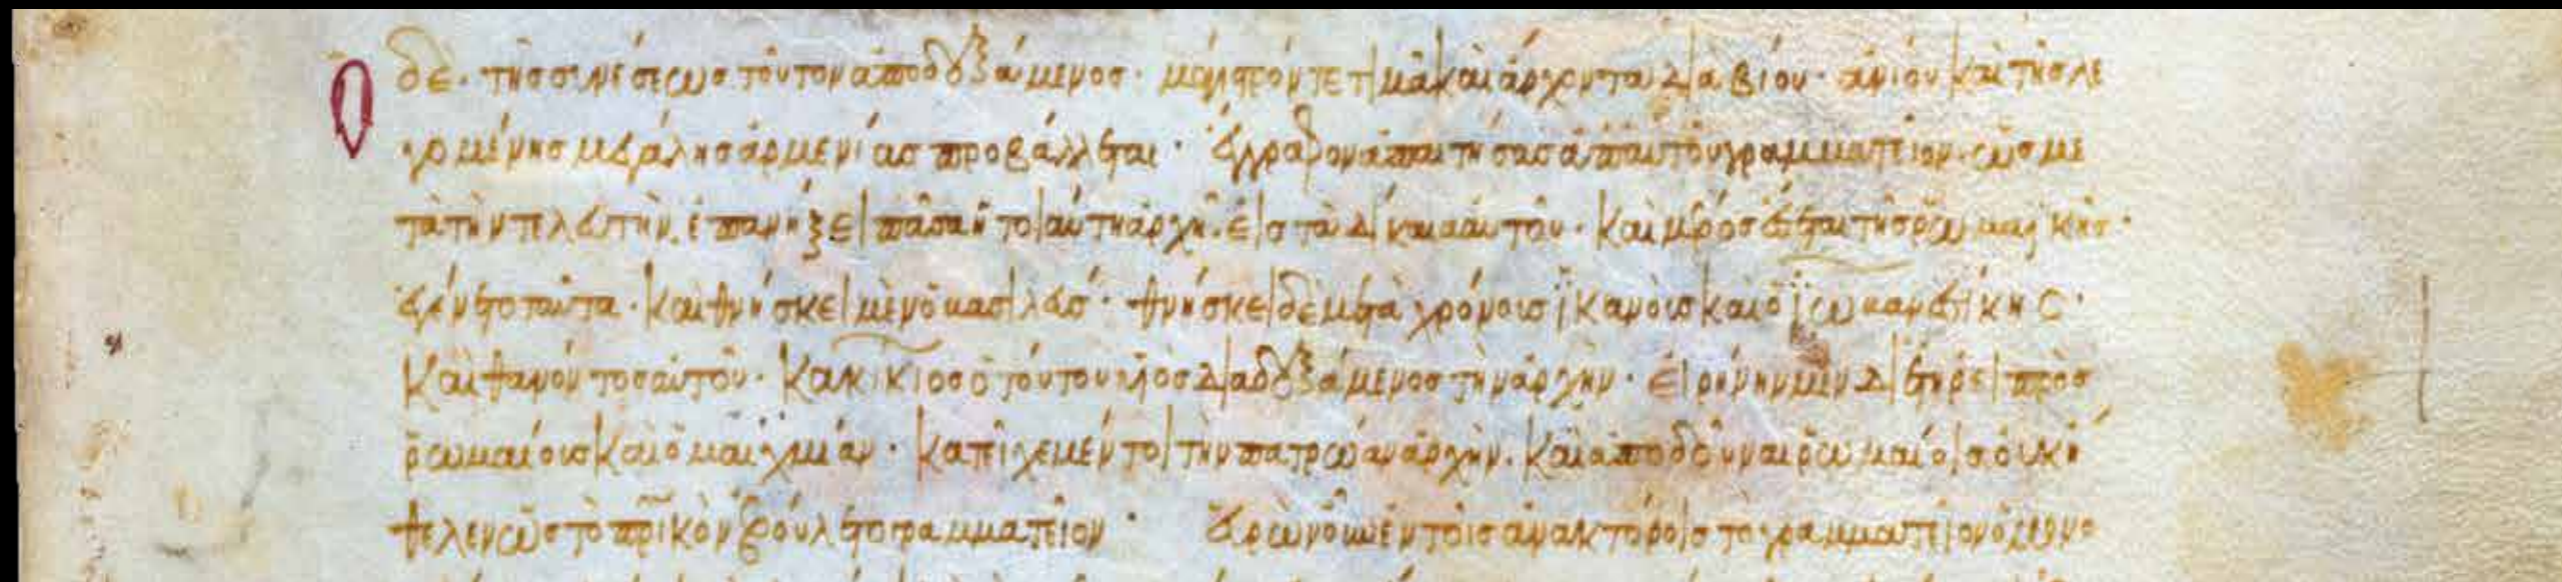 Ὁ δὲ τῆς συνέσεως τοῦτον ἀποδεξάμενος· μάγιστρόν τε τιμᾶ καὶ ἄρχοντα διαβίου· ἀνίου καὶ τῆς λε
γομένης μεγάλης ἀρμενίας προβάλλεται· ἔγγραφον ἀπαιτήσας ἀπαυτοῦ γραμματεῖον· ὡς με
τὰ τὴν τελευτὴν ἐπανήξει πᾶσα ἡ τοιαύτη ἀρχὴ εἰς τὰ δίκαια αὐτοῦ· καὶ μέρος ἔσται τῆς ῥωμαϊκῆς·
ἐγένετο ταῦτα· καὶ θνήσκει μὲν ὁ βασιλεύς· θνήσκει δὲ μετὰ χρόνους ἱκανοὺς καὶ ὁ ἰωβανεσίκης·
καὶ θανόντος αὐτοῦ· κακίκιος ὁ τούτου υἱὸς διαδεξάμενος τὴν ἀρχὴν· εἰρήνην μὲν διετήρει πρὸς
ῥωμαίους καὶ ὁμαιχμίαν· κατεῖχε μέντοι τὴν πατρώαν ἀρχὴν· καὶ ἀποδοῦναι ῥωμαίοις οὐκ ἤ
θελεν ὡς τὸ πρικὸν ἐβούλετο γραμματεῖον· εὑρὼν οὖν ἐν τοῖς ἀνακτόροις τὸ γραμματεῖον ὁ